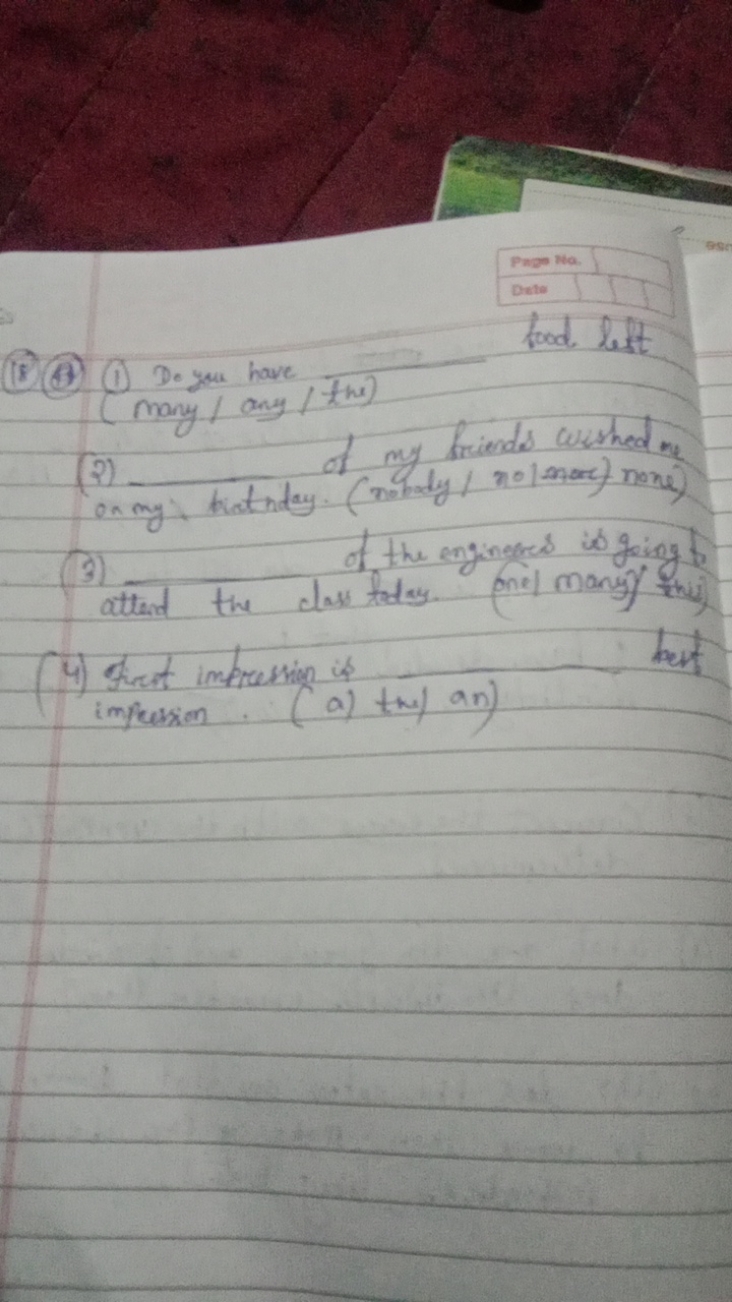 Page No.
Date
18 (1) Do you have ________ food left
(many / any / the)
(2) ________ of my friends wished me
on my birthday. (nobody / no / none)
(3) ________ of the engineers is going to
attend the class today. (one / many / this)
(4) First impression is ________ best
impression. (a) the) an)
use